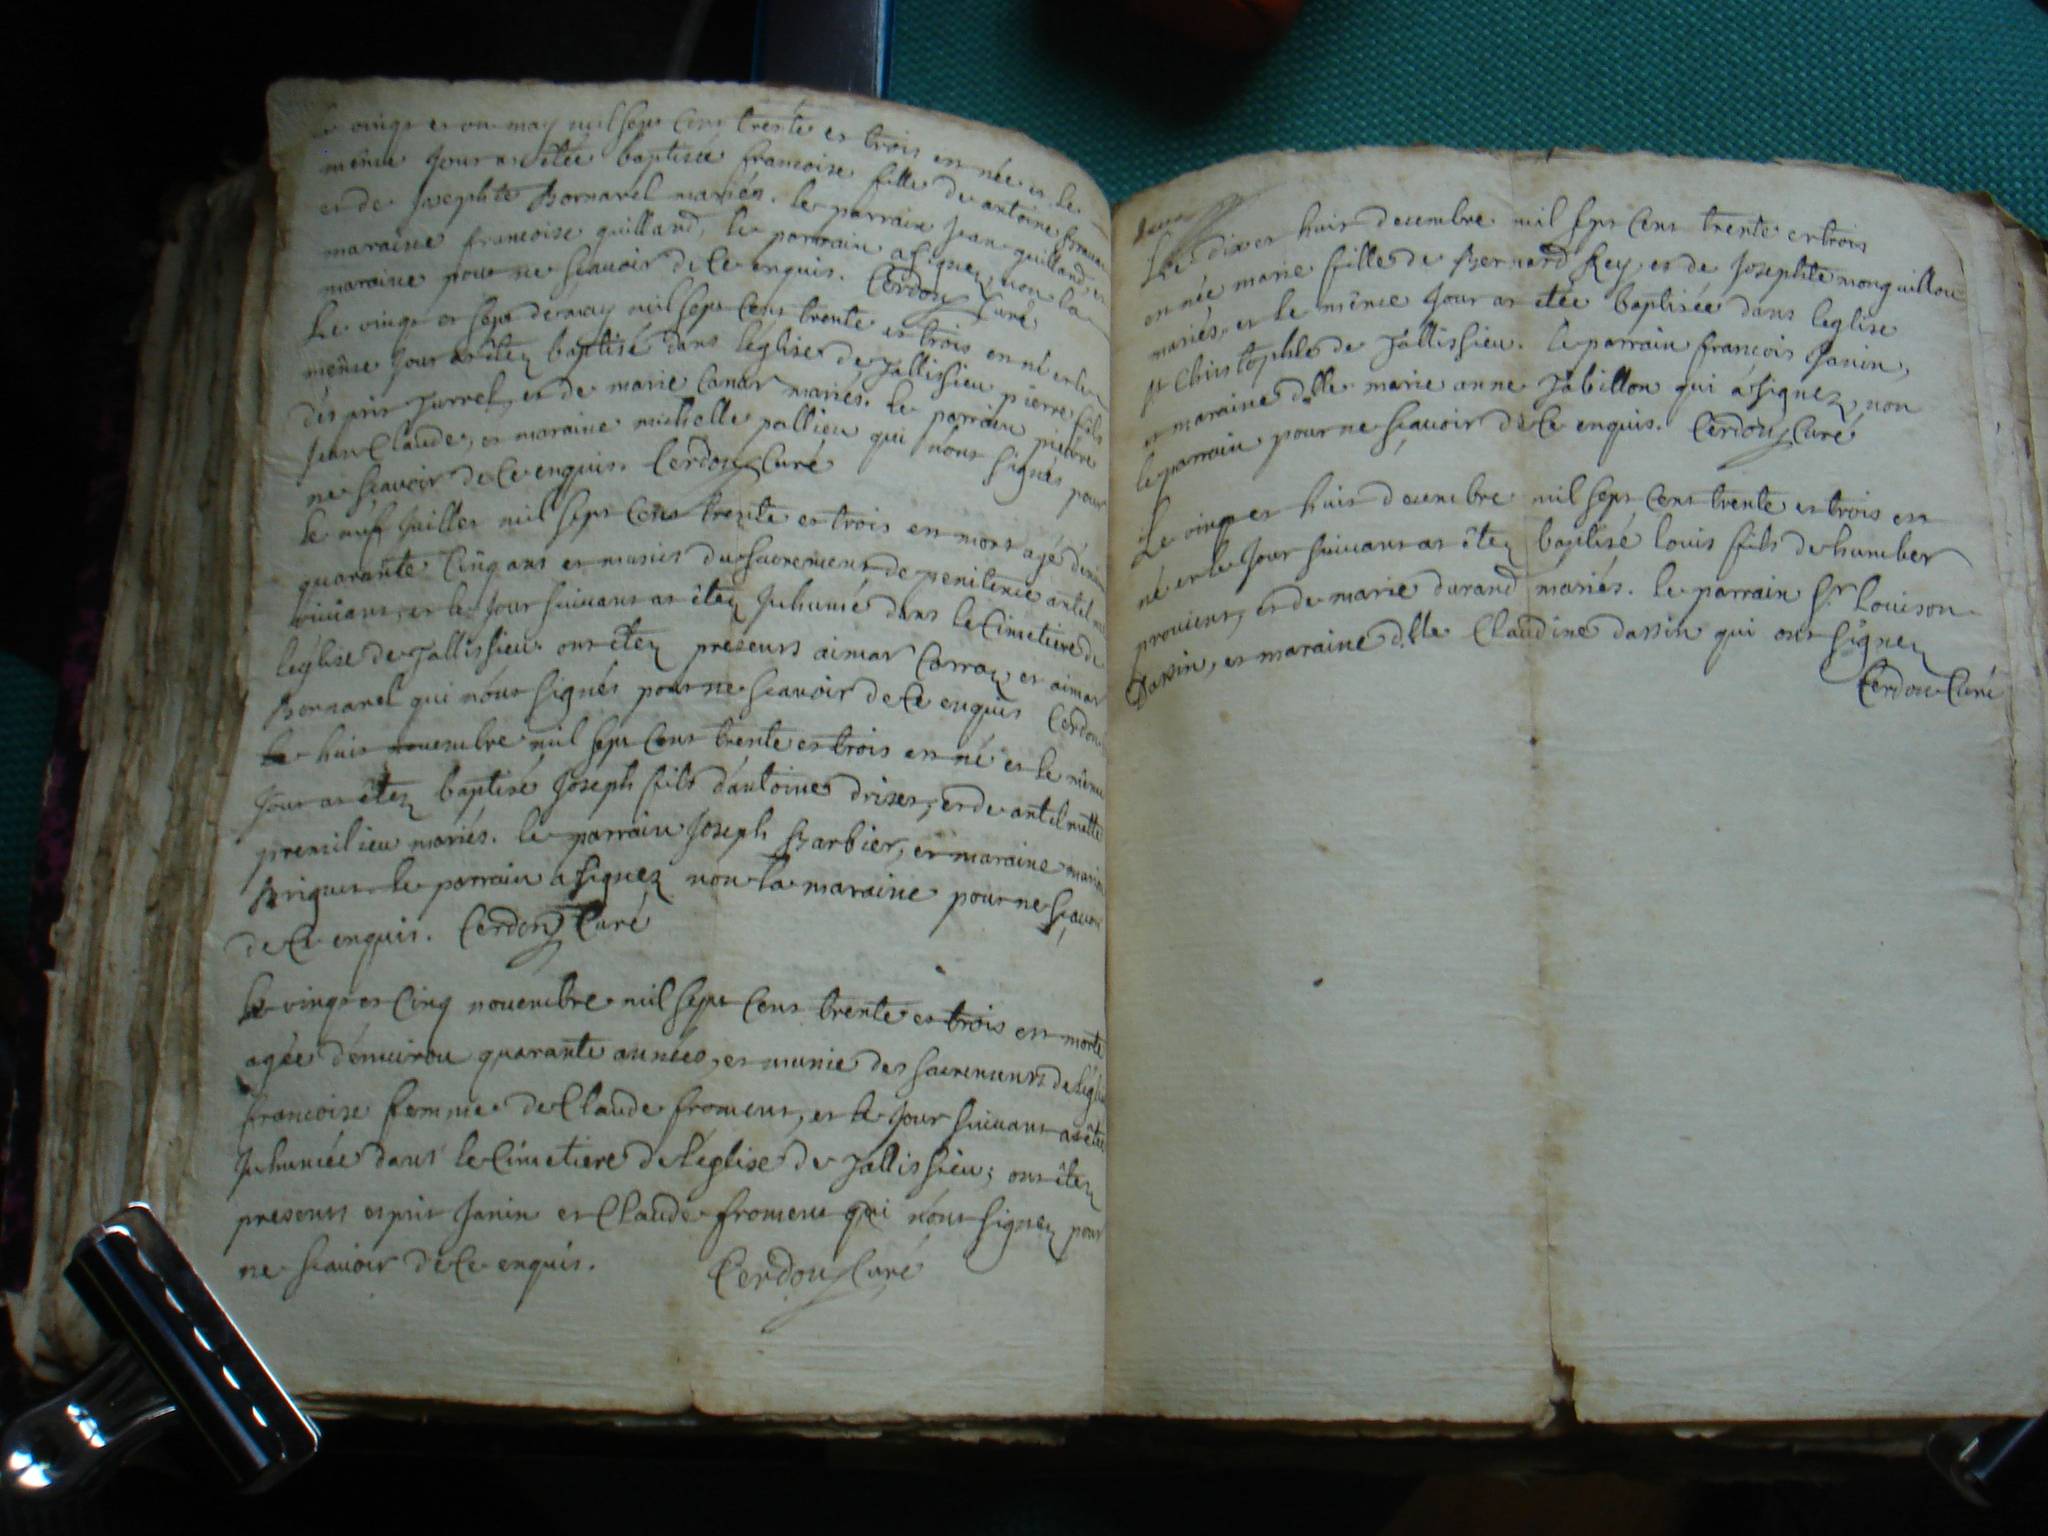 vingt et un may mil sept cens trente et trois est née et le
même jour at êtée baptisée francoise fille de antoine
et de Josephte Bornarel mariés. le parrain Jean guilland, et
maraine francoise guilland, le parrain a signez non la
maraine pour ne scavoir de Ce enquis. Cerdon Curé
Le vingt et sept de may mil sept cens trente et trois est né et le
même jour at êtez baptisé dans l'église de Jallissieu pierre fils
d'esprit Jurrel, et de marie Canar mariés. le parrain pierre
Jean Claude, et maraine michelle pallieu qui n'ont signés pour
ne scavoir de Ce enquis. Cerdon Curé
le neuf Juillet mil sept Cens trente et trois est mort agé d'environ
quarante Cinq ans et munis du sacrement de penitence antel
vivant, et le jour suivant at êtez Inhumé dans le Cimetiere de
leglise de Jallissieu. ont êtez presents aimar Carraz et aimar
Bornarel qui n'ont signés pour ne scavoir de Ce enquis Cerdon
le huit novembre mil sept Cens trente et trois est né et le même
Jour at êtez baptisé Joseph fils d'antoine driset, et de antelmette
premilieu mariés. le parrain Joseph Barbier, et maraine marie
Briguet le parrain a signez non la maraine pour ne scavoir
de Ce enquis. Cerdon Curé
Le vingt et Cinq novembre mil sept Cens trente et trois est morte
agée d'environ quarante années, et munie des sacrements de l'église
francoise femme de Claude froment, et le jour suivant at êtée
Inhumée dans le Cimetiere de l'église de Jallissieu; ont êtez
presents esprit Janin et Claude froment qui n'ont signez pour
ne scavoir de Ce enquis. Cerdon Curé
Le dix et huit decembre mil sept Cens trente et trois
est née marie fille de Bernard Rey, et de Josephte monguillou
mariés, et le même Jour at êtée baptisée dans leglise
st Christophle de Jallissieu. le parrain francois Janin,
et maraine dlle marie anne Jabillon qui a signez, non
le parrain pour ne scavoir de Ce enquis. Cerdon Curé
Le vingt et huit decembre mil sept Cens trente et trois est
né et le Jour suivant at êtez baptisé louis fils de humber
provient, et de marie durand mariés. le parrain Sr Louison
Dassin, et maraine dlle Claudine dassin qui ont signez
Cerdon Curé